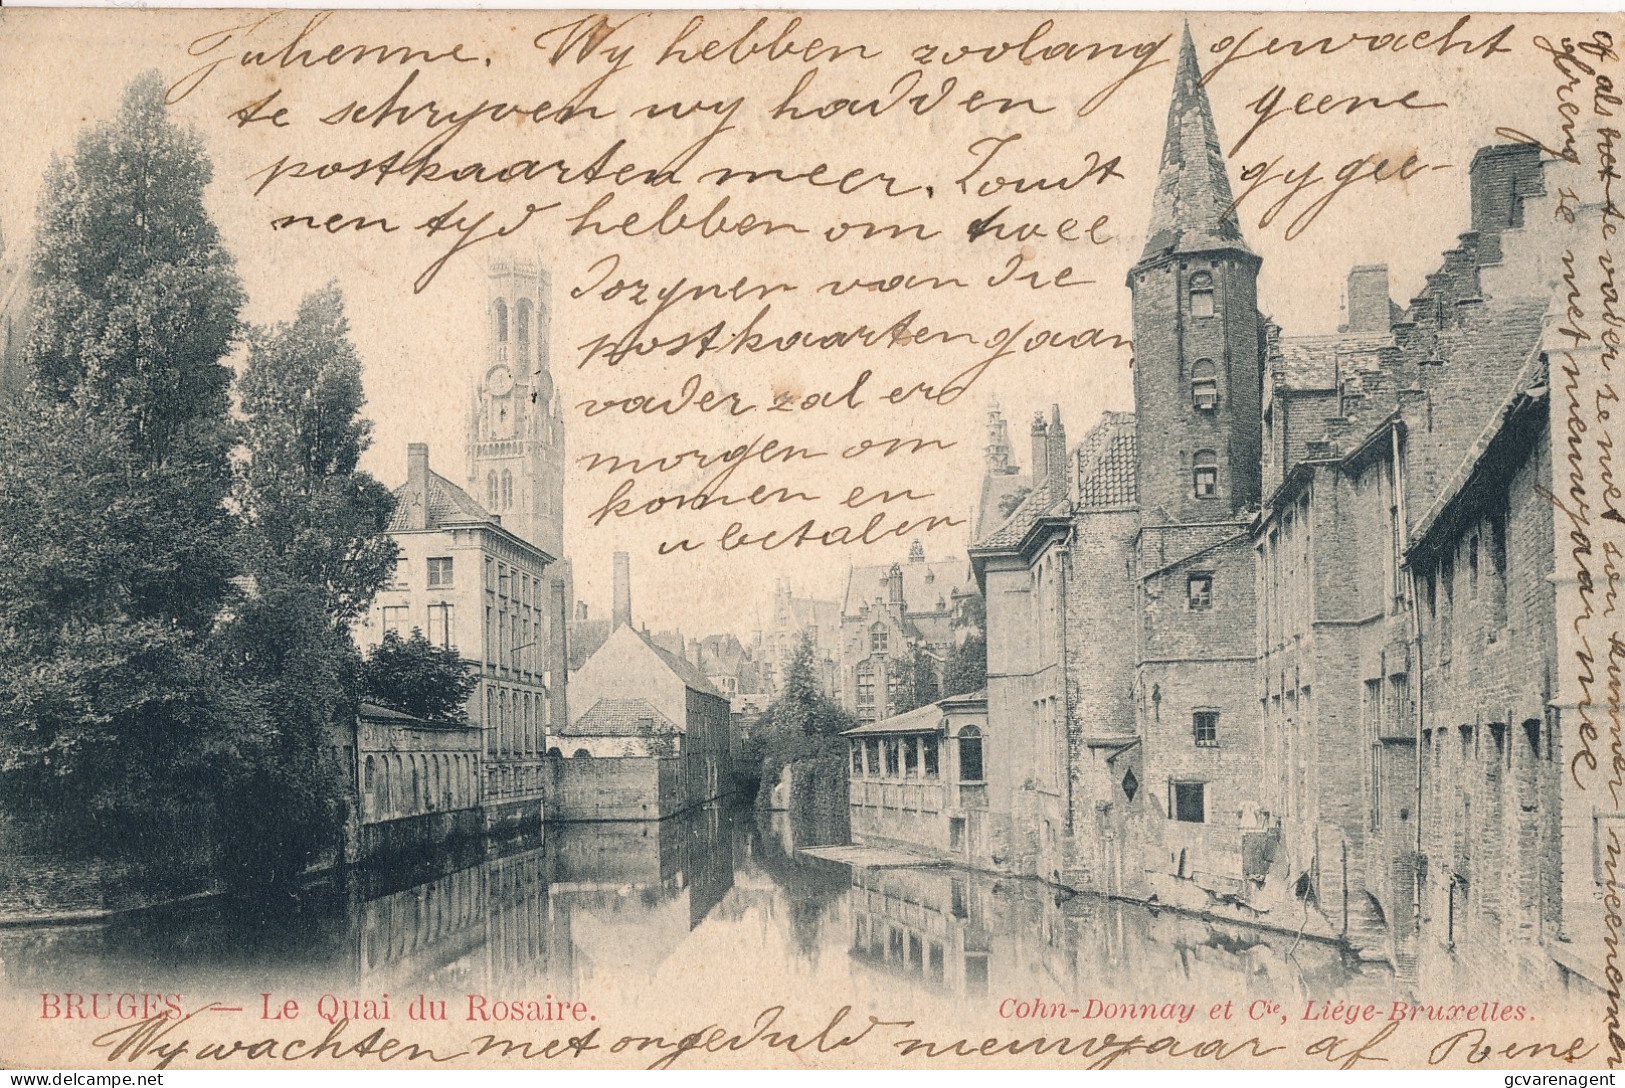 Julienne. Wy hebben zoolang gewacht
te schryven wy hadden geene
postkaarten meer. Zoudt gy gee-
nen tyd hebben om twee
dozynen van die
postkaarten gaan
vader zal er
morgen om
komen en
u betalen
of als het te vader ze niet sou kunnen meenemen
breng ze met nieuwjaar mee
BRUGES. — Le Quai du Rosaire.
Cohn-Donnay et Cie, Liége-Bruxelles.
Wy wachten met ongeduld nieuwjaar af René
delcampe.net
gcvarenagent